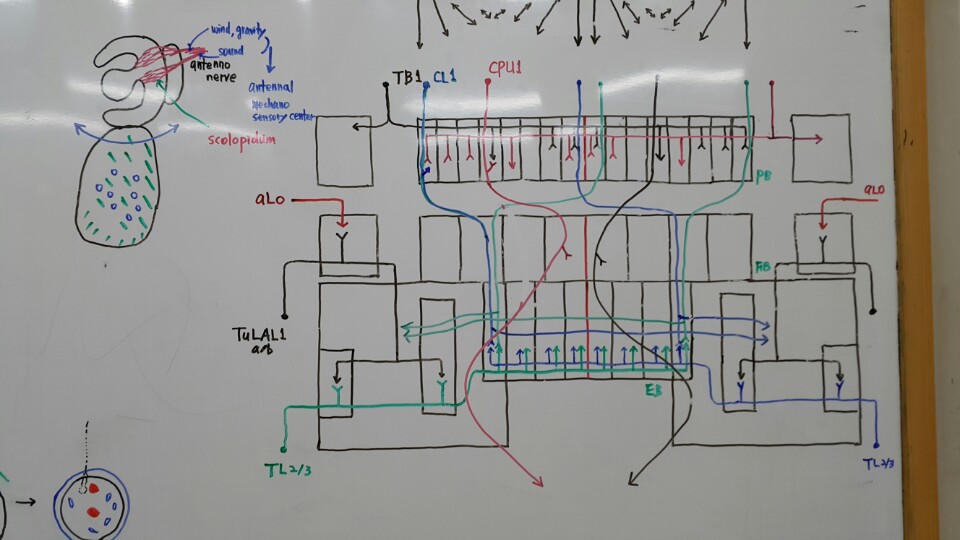 wind, gravity
sound
antenno
nerve
antennal
mechano
sensory center
scolopidium
TB1
CL1
CPU1
PB
aLo
aLo
FB
TuLAL1
a/b
EB
TL2/3
TL2/3